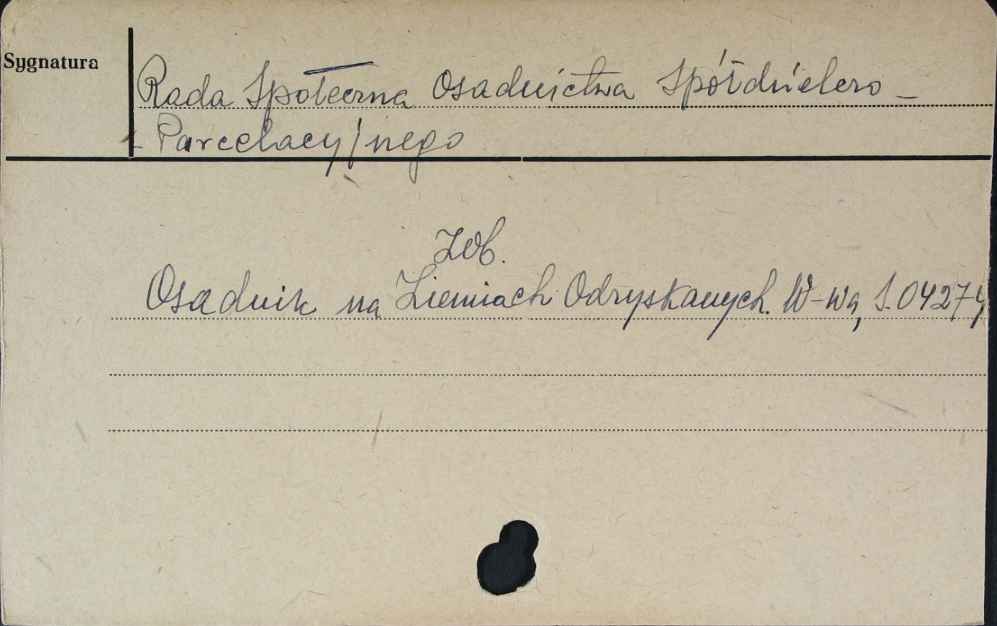 Sygnatura
Rada Społeczna Osadnictwa Spółdzielczo -
- Parcelacyjnego
Zob.
Osadnik na Ziemiach Odzyskanych. W-wa, S.04274